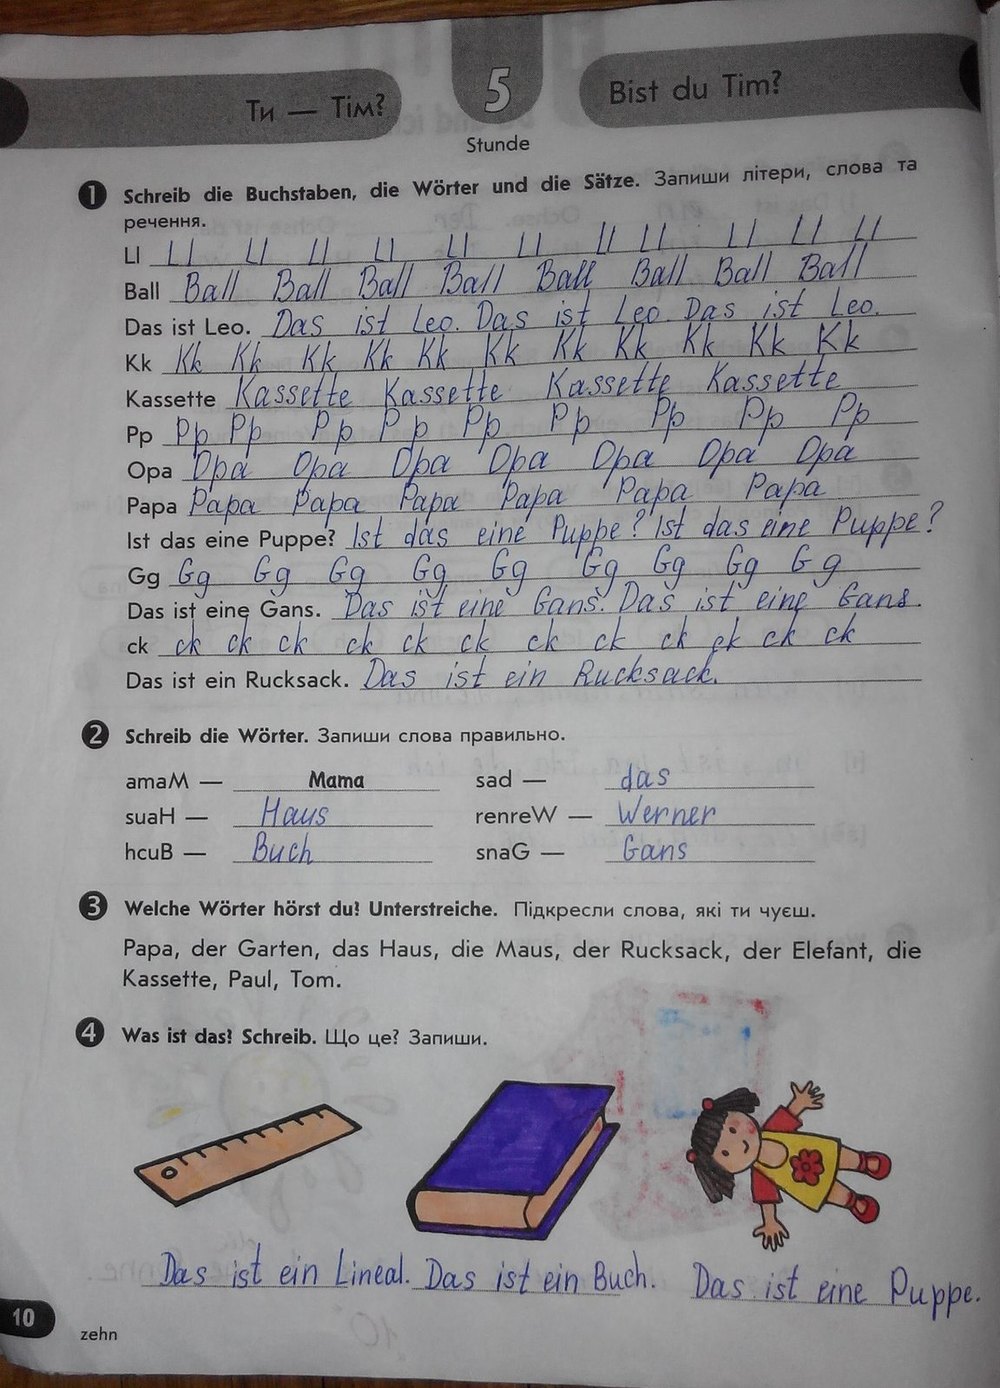 Ти — Тім?
5
Bist du Tim?
Stunde
1 Schreib die Buchstaben, die Wörter und die Sätze. Запиши літери, слова та
речення.
Ll Ll Ll Ll Ll Ll Ll Ll Ll Ll Ll Ll
Ball Ball Ball Ball Ball Ball Ball Ball Ball
Das ist Leo. Das ist Leo. Das ist Leo. Das ist Leo.
Kk Kk Kk Kk Kk Kk Kk Kk Kk Kk Kk Kk
Kassette Kassette Kassette Kassette Kassette
Pp Pp Pp Pp Pp Pp Pp Pp Pp Pp
Opa Opa Opa Opa Opa Opa Opa Opa
Papa Papa Papa Papa Papa Papa Papa
Ist das eine Puppe? Ist das eine Puppe? Ist das eine Puppe?
Gg Gg Gg Gg Gg Gg Gg Gg Gg Gg
Das ist eine Gans. Das ist eine Gans. Das ist eine Gans.
ck ck ck ck ck ck ck ck ck ck ck ck ck
Das ist ein Rucksack. Das ist ein Rucksack.
2 Schreib die Wörter. Запиши слова правильно.
amaM — Mama sad — das
suaH — Haus renreW — Werner
hcuB — Buch snaG — Gans
3 Welche Wörter hörst du? Unterstreiche. Підкресли слова, які ти чуєш.
Papa, der Garten, das Haus, die Maus, der Rucksack, der Elefant, die
Kassette, Paul, Tom.
4 Was ist das? Schreib. Що це? Запиши.
Das ist ein Lineal. Das ist ein Buch. Das ist eine Puppe.
10
zehn